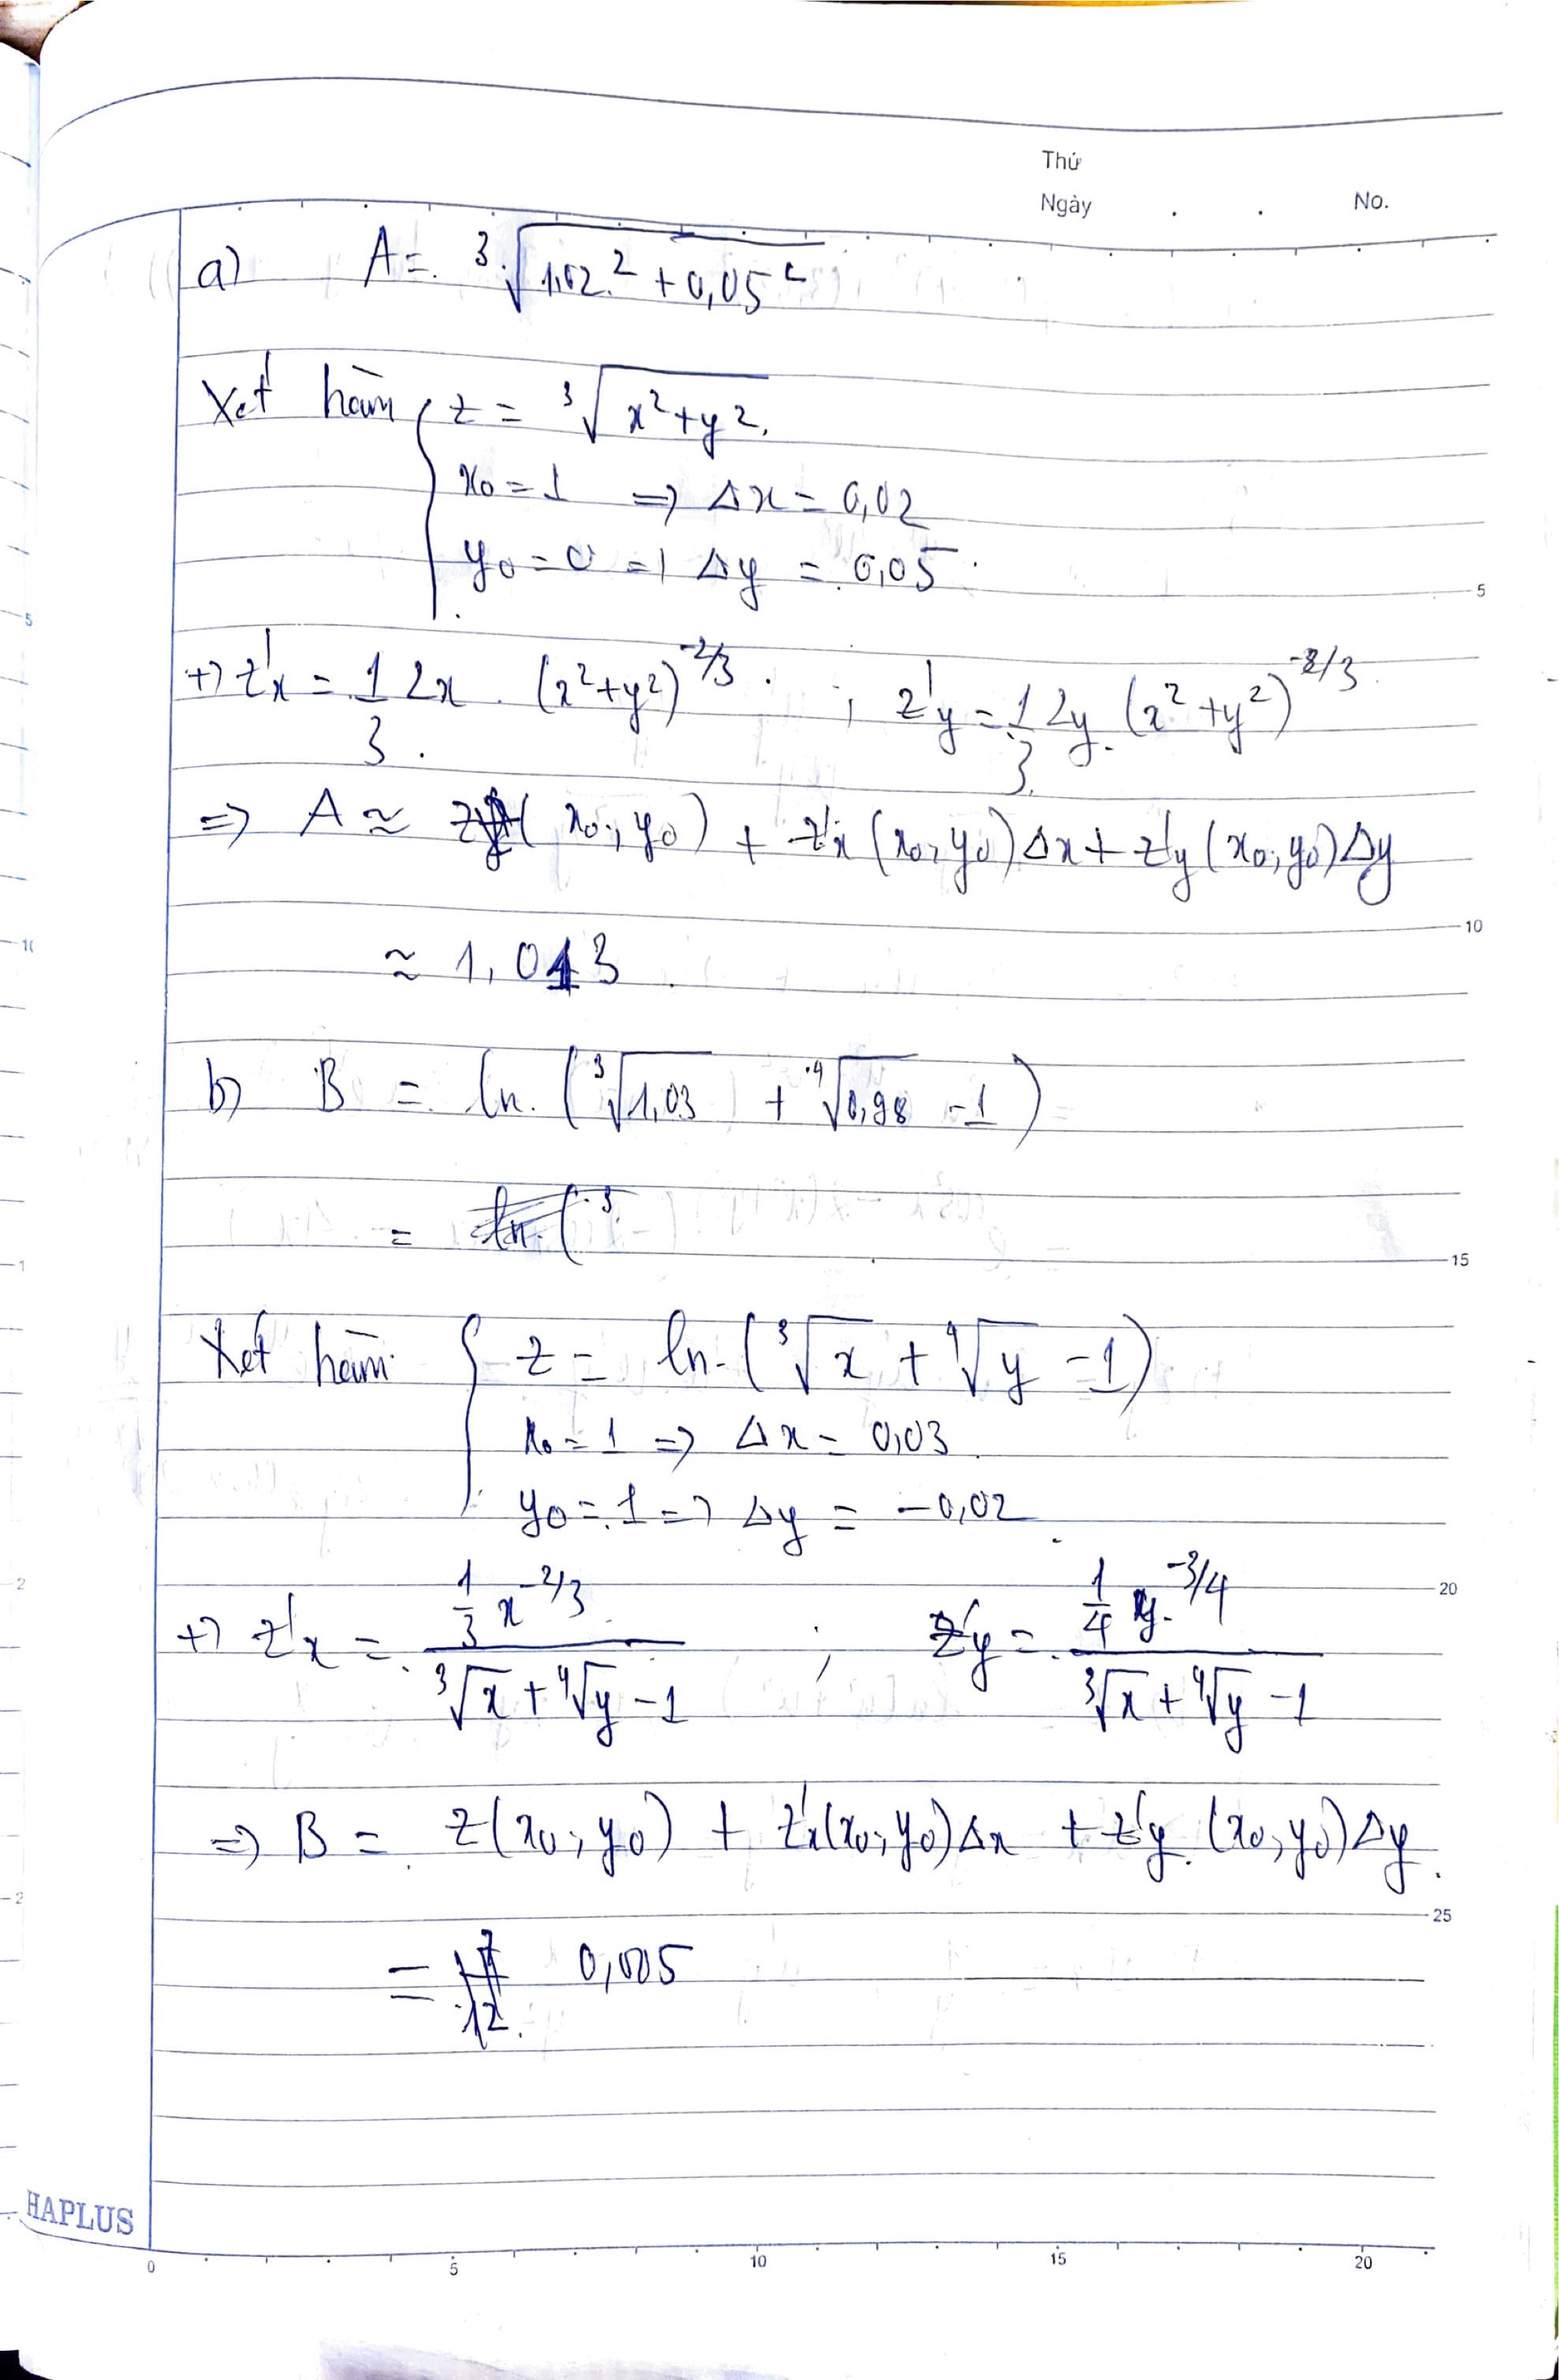 Thứ
Ngày . . No.
a) A = ∛(1,02² + 0,05²)
Xét hàm { z = ∛(x² + y²)
x₀ = 1 => Δx = 0,02
y₀ = 0 => Δy = 0,05
5
+) z'x = 1/3 2x . (x² + y²)^(-2/3) ; z'y = 1/3 2y . (x² + y²)^(-2/3)
=> A ≈ z(x₀; y₀) + z'x (x₀; y₀) Δx + z'y (x₀; y₀) Δy
10
≈ 1,013
b) B = ln (∛1,03 + ∜0,98 - 1)
= ln (3
15
Xét hàm { z = ln (∛x + ∜y - 1)
x₀ = 1 => Δx = 0,03
y₀ = 1 => Δy = -0,02
20
+) z'x = (1/3 x^(-2/3)) / (∛x + ∜y - 1) ; z'y = (1/4 y^(-3/4)) / (∛x + ∜y - 1)
=> B = z(x₀; y₀) + z'x(x₀; y₀) Δx + z'y (x₀; y₀) Δy
25
= 0,005
HAPLUS
0 5 10 15 20